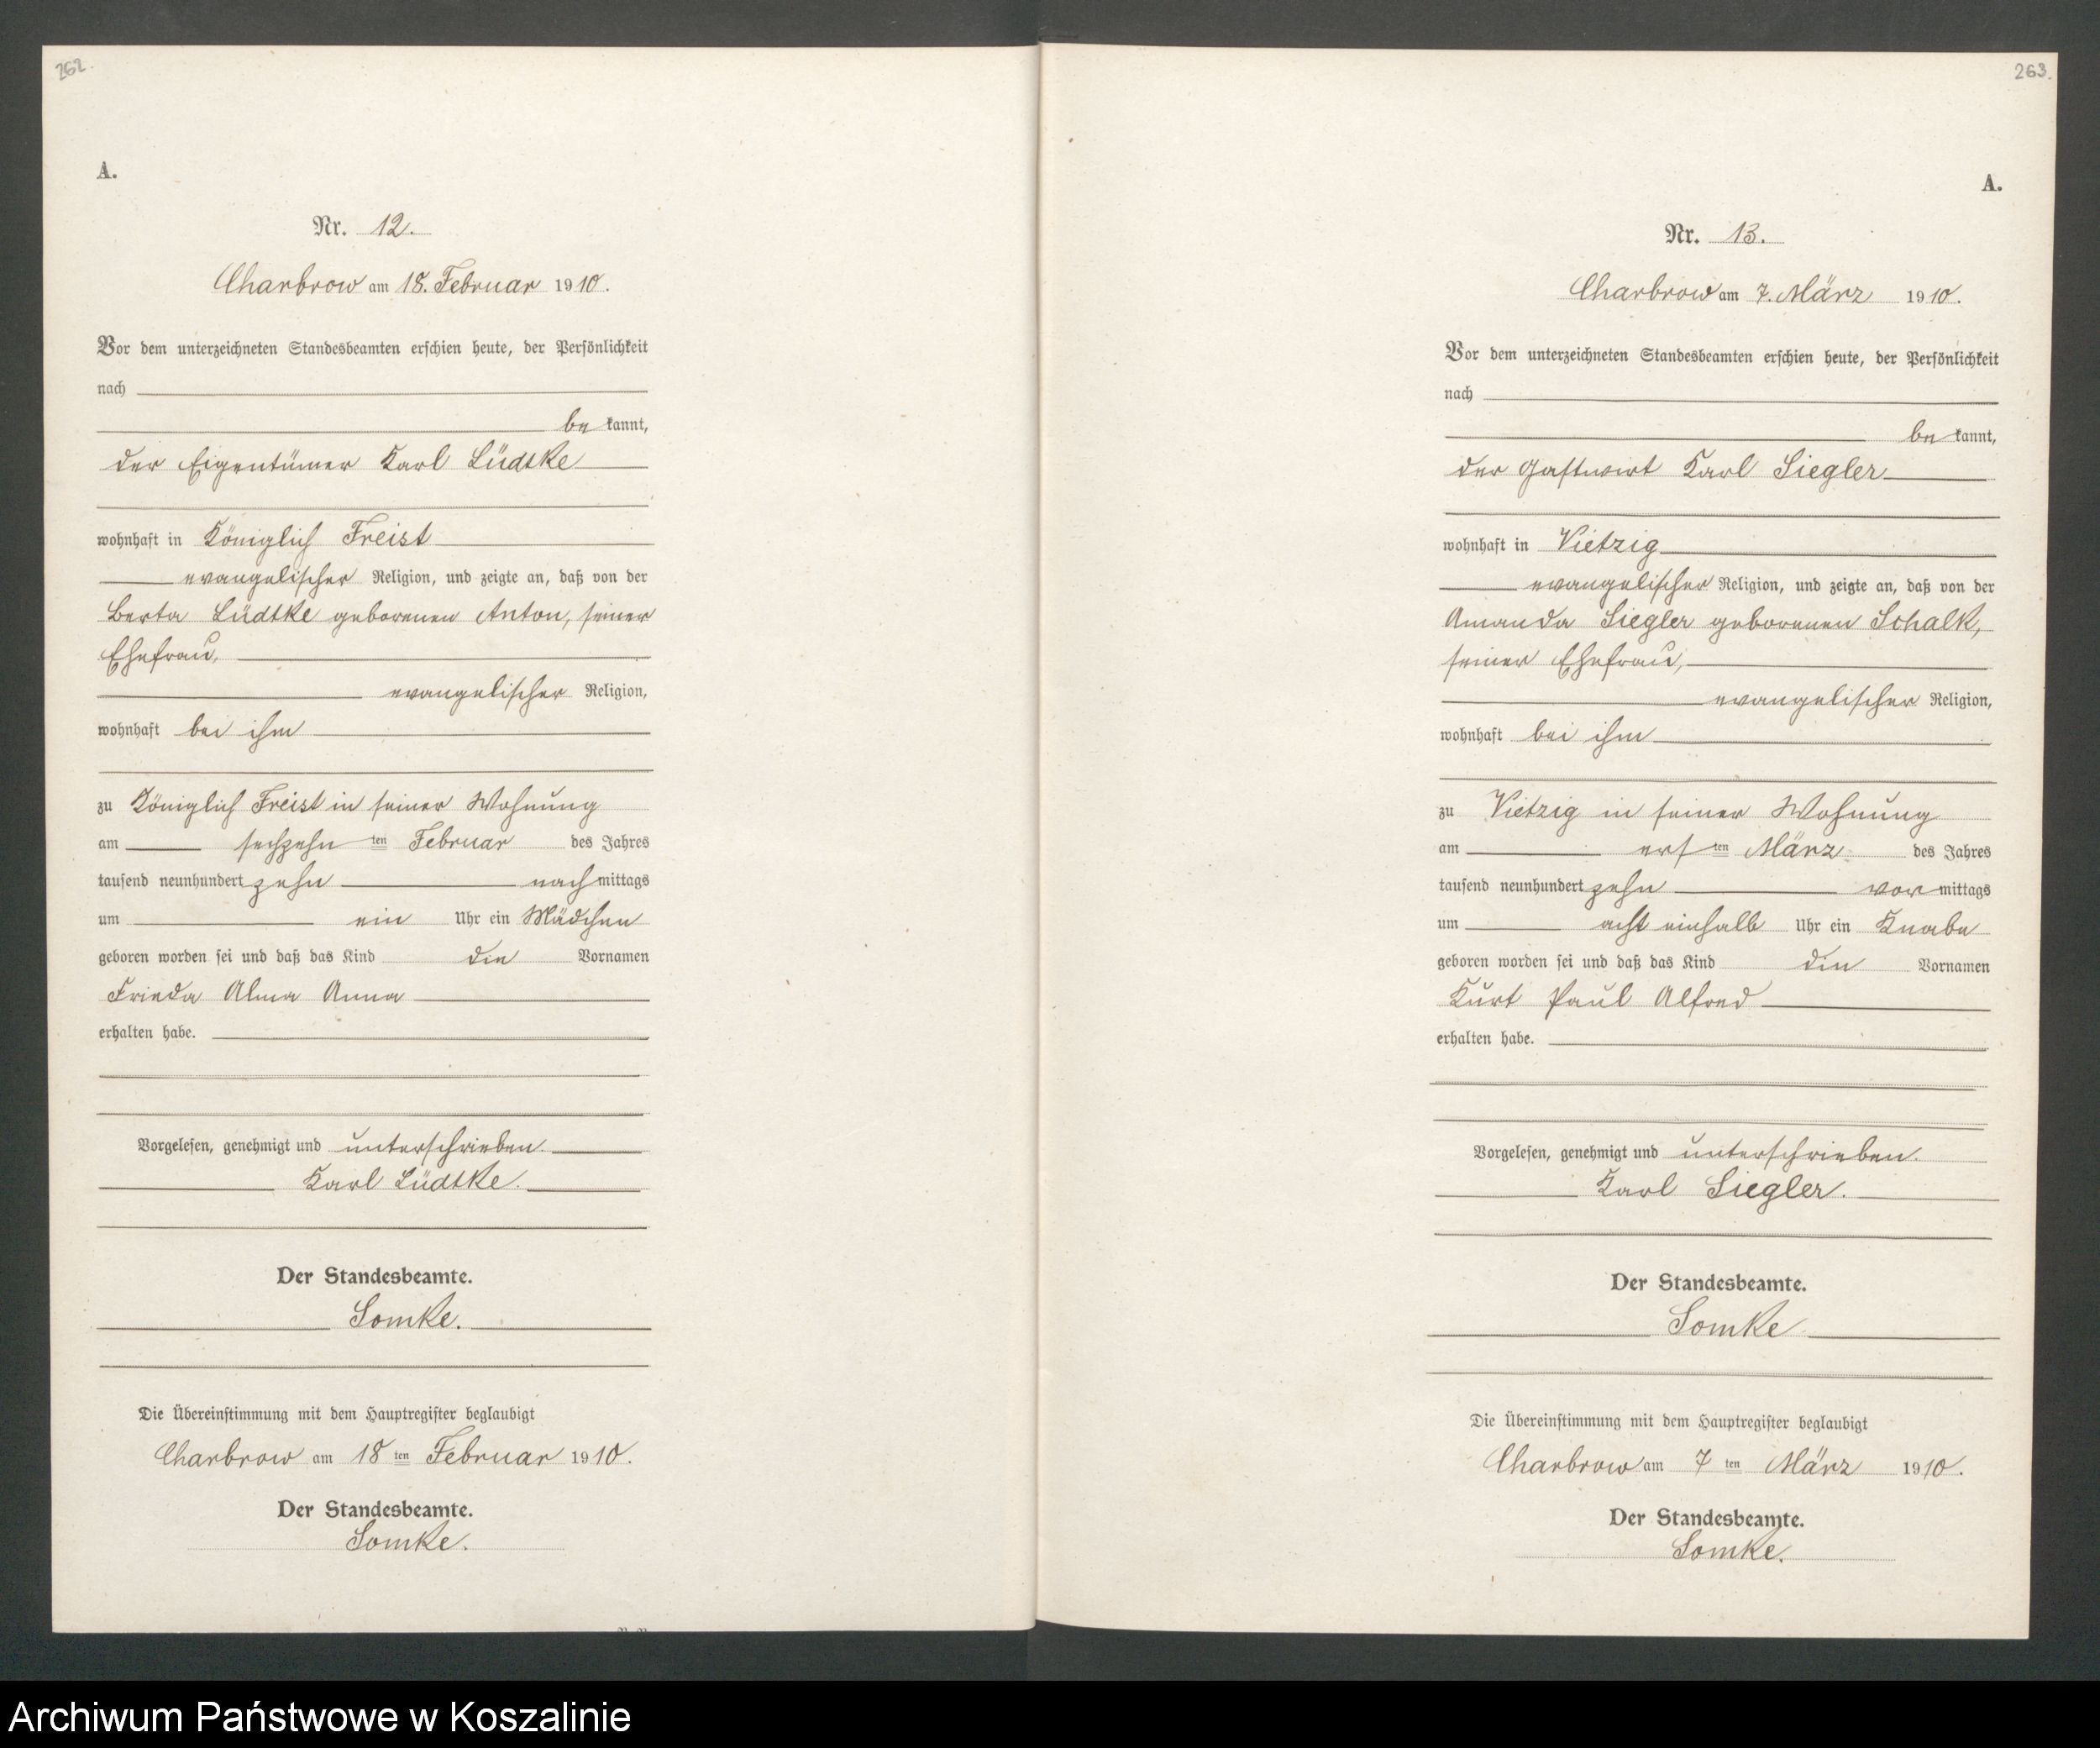 262.
A.
Nr. 12.
Charbrow am 18. Februar 1910.
Vor dem unterzeichneten Standesbeamten erschien heute, der Persönlichkeit
nach
be kannt,
der Eigentümer Karl Lüdtke
wohnhaft in Königlich Freist
evangelischer Religion, und zeigte an, daß von der
Berta Lüdtke geborenen Anton, seiner
Ehefrau,
evangelischer Religion,
wohnhaft bei ihm
zu Königlich Freist in seiner Wohnung
am sechzehn ten Februar des Jahres
tausend neunhundert zehn nach mittags
um ein Uhr ein Mädchen
geboren worden sei und daß das Kind die Vornamen
Frieda Alma Anna
erhalten habe.
Vorgelesen, genehmigt und unterschrieben.
Karl Lüdtke.
Der Standesbeamte.
Somke.
Die Übereinstimmung mit dem Hauptregister beglaubigt
Charbrow am 18 ten Februar 1910.
Der Standesbeamte.
Somke.
263.
A.
Nr. 13.
Charbrow am 7. März 1910.
Vor dem unterzeichneten Standesbeamten erschien heute, der Persönlichkeit
nach
be kannt,
der Gastwirt Karl Siegler
wohnhaft in Vietzig
evangelischer Religion, und zeigte an, daß von der
Amanda Siegler geborenen Schalk,
seiner Ehefrau,
evangelischer Religion,
wohnhaft bei ihm
zu Vietzig in seiner Wohnung
am ers ten März des Jahres
tausend neunhundert zehn vor mittags
um acht einhalb Uhr ein Knabe
geboren worden sei und daß das Kind die Vornamen
Kurt Paul Alfred
erhalten habe.
Vorgelesen, genehmigt und unterschrieben.
Karl Siegler.
Der Standesbeamte.
Somke
Die Übereinstimmung mit dem Hauptregister beglaubigt
Charbrow am 7 ten März 1910.
Der Standesbeamte.
Somke.
Archiwum Państwowe w Koszalinie